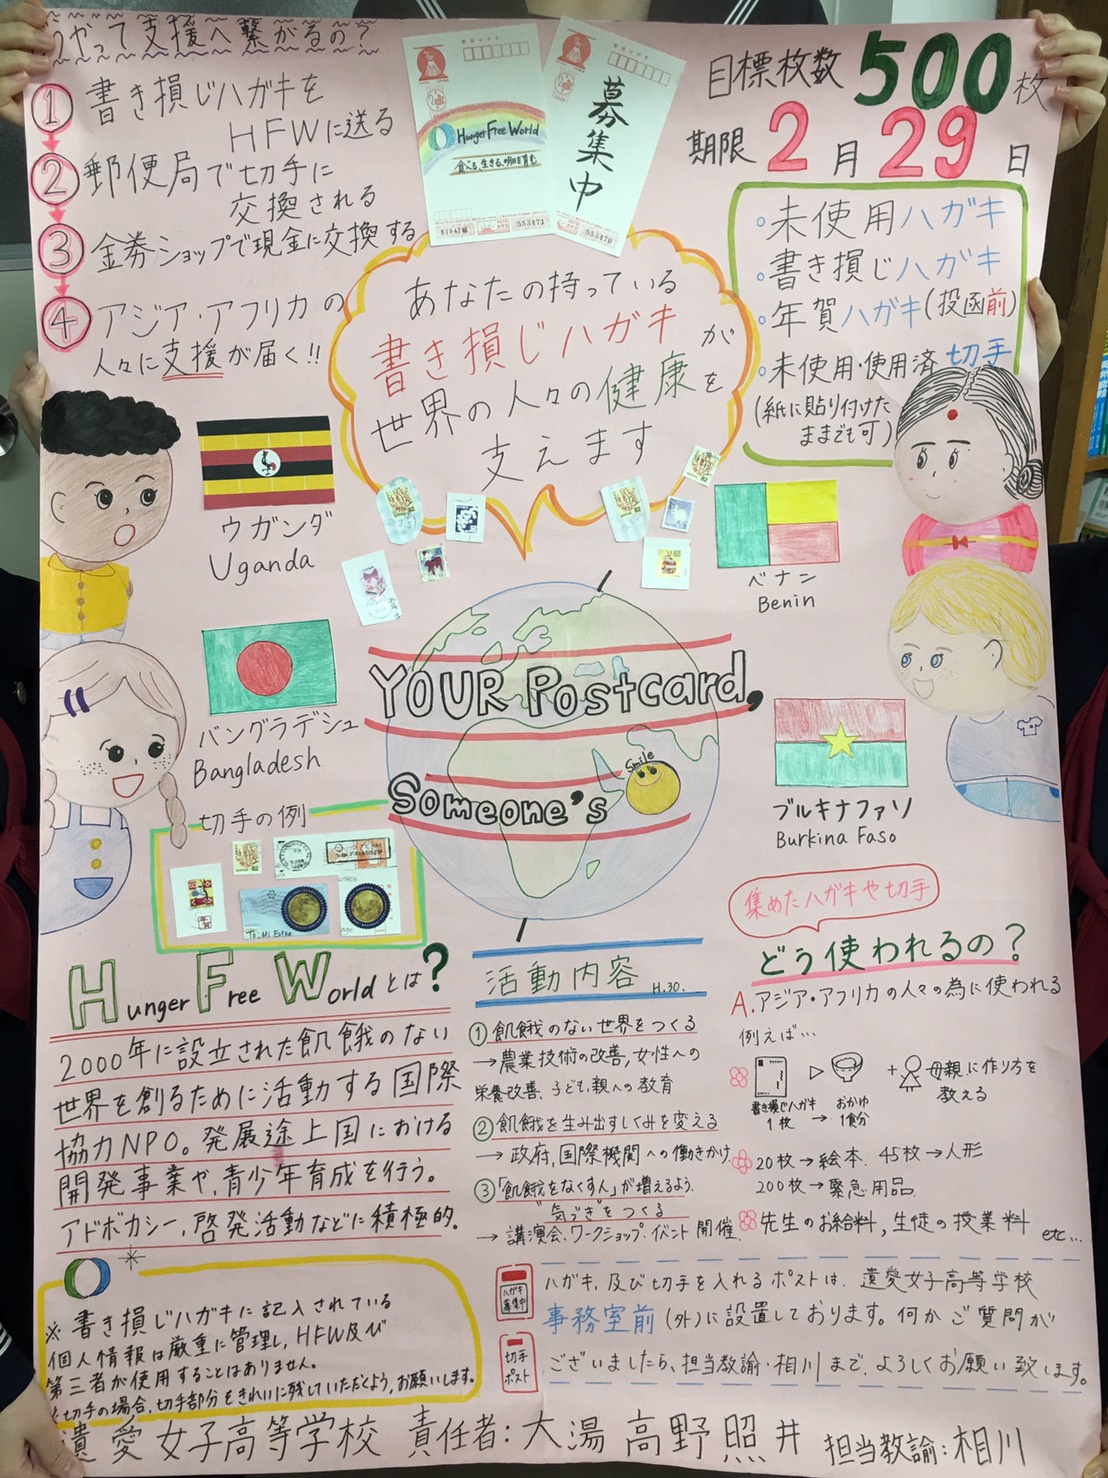 やって支援へ繋がるの?
① 書き損じハガキを
HFWに送る
② 郵便局で切手に
交換される
③ 金券ショップで現金に交換する
④ アジア・アフリカの
人々に支援が届く!!
Hunger Free World
食べる、生きる、明日を育む
募集中
B1847組 553471
553470
目標枚数 500枚
期限 2月29日
◦未使用ハガキ
◦書き損じハガキ
◦年賀ハガキ(投函前)
◦未使用・使用済切手
(紙に貼り付けた
ままでも可)
あなたの持っている
書き損じハガキが
世界の人々の健康を
支えます
ウガンダ
Uganda
ベナン
Benin
バングラデシュ
Bangladesh
ブルキナファソ
Burkina Faso
YOUR Postcard,
Someone's
Smile
切手の例
Hunger Free Worldとは?
2000年に設立された飢餓のない
世界を創るために活動する国際
協力NPO。発展途上国における
開発事業や、青少年育成を行う。
アドボカシー、啓発活動などに積極的。
活動内容 H.30.
① 飢餓のない世界をつくる
→農業技術の改善,女性への
栄養改善、子ども,親への教育
② 飢餓を生み出すしくみを変える
→政府,国際機関への働きかけ
③ 「飢餓をなくす人」が増えるよう、
"気づき"をつくる
→講演会、ワークショップ・イベント開催
集めたハガキや切手
どう使われるの?
A.アジア・アフリカの人々の為に使われる
例えば…
書き損じハガキ1枚 → おかゆ1食分
+母親に作り方を
教える
20枚→絵本 45枚→人形
200枚→緊急用品
先生のお給料,生徒の授業料 etc…
※書き損じハガキに記入されている
個人情報は厳重に管理し,HFW及び
第三者が使用することはありません。
※切手の場合、切手部分をきれいに残していただくよう,お願いします。
ハガキ募集中
切手ポスト
ハガキ,及び切手を入れるポストは、遺愛女子高等学校
事務室前(外)に設置しております。何かご質問が
ございましたら、担当教諭・相川まで、よろしくお願い致します。
遺愛女子高等学校 責任者:大湯 高野 照井 担当教諭:相川